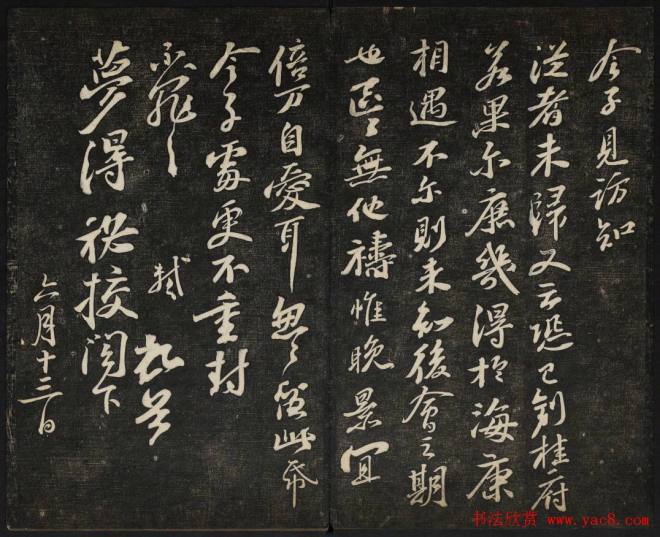 令子見訪知
從者未歸又云恐已到桂府
若果尔庶幾得於海康
相遇不尔則未知後會之期
也區〻無他禱惟晚景宜
倍万自愛耳忽〻留此帋
令子處更不重封
不罪〻 軾頓首
夢得祕校閣下
六月十三日
书法欣赏 www.yac8.com